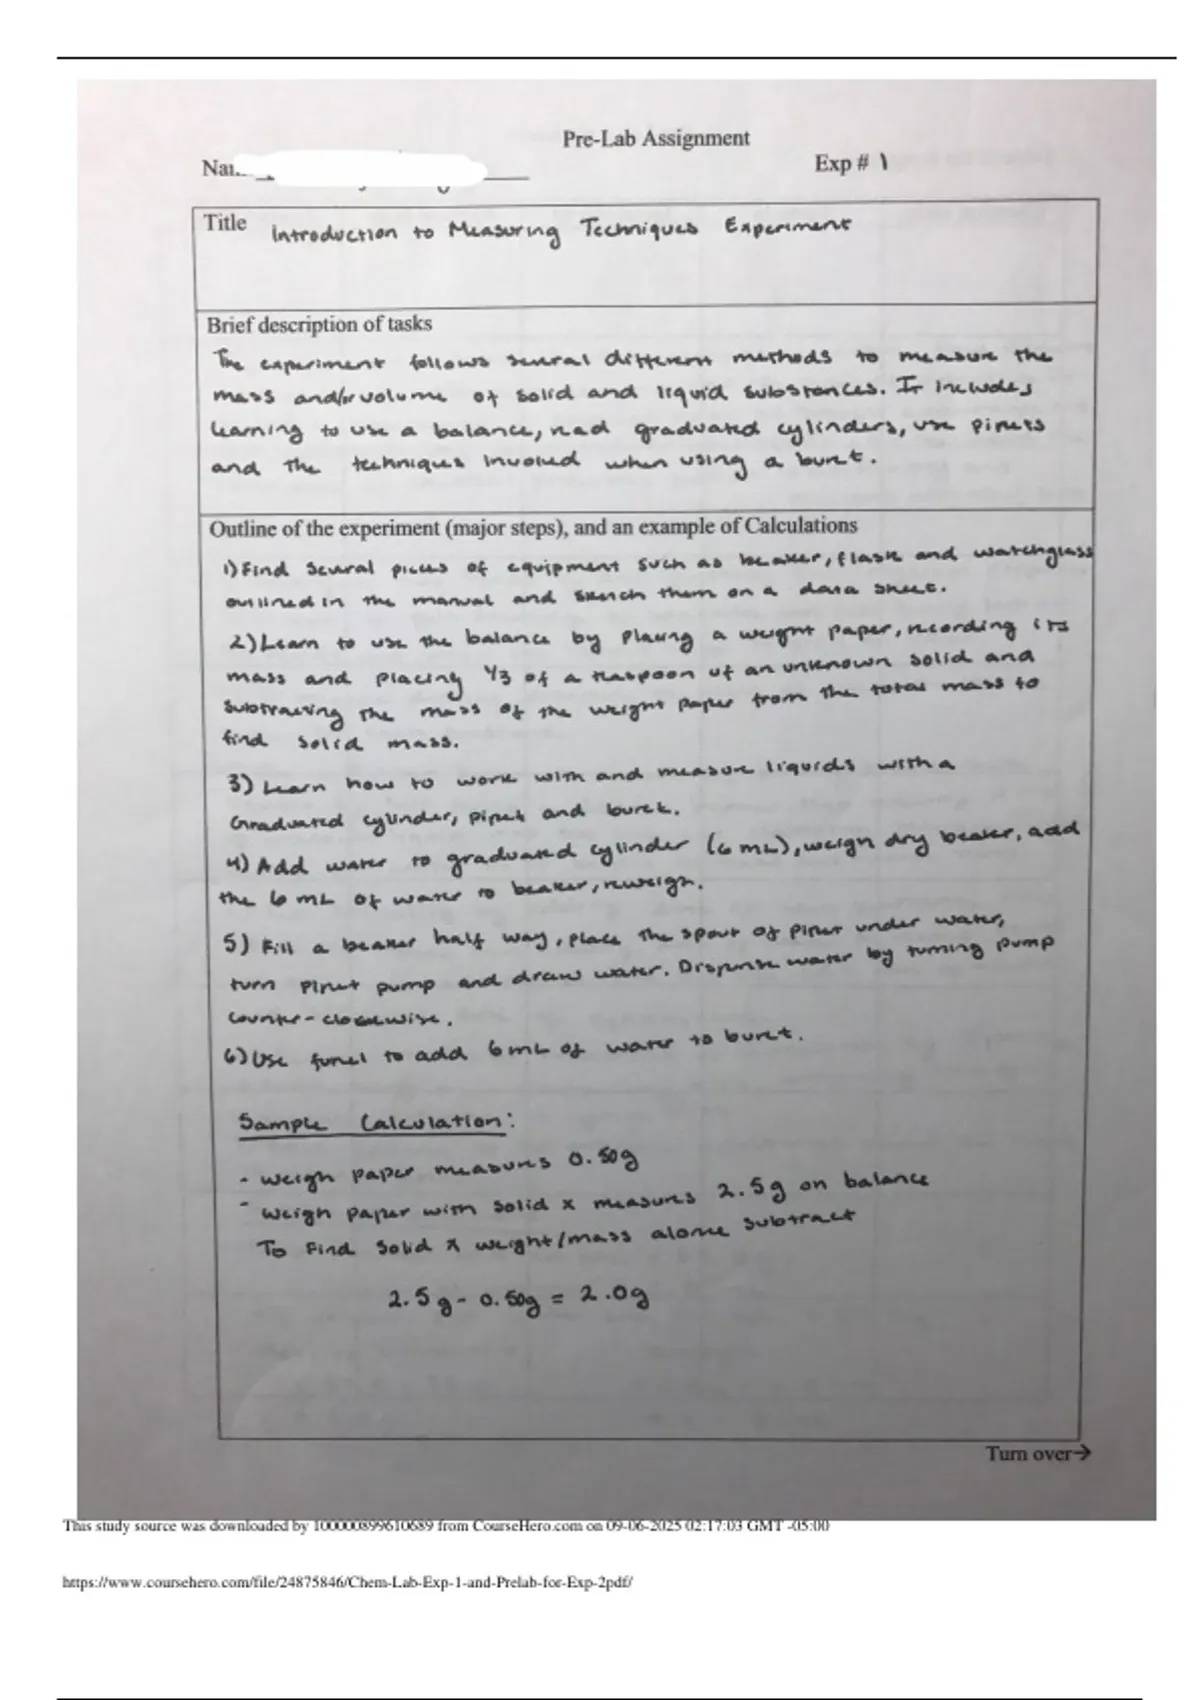 Pre-Lab Assignment
Exp # 1
Title Introduction to Measuring Techniques Experiment
Brief description of tasks
The experiment follows several different methods to measure the
mass and/or volume of solid and liquid substances. It includes
learning to use a balance, read graduated cylinders, use pipets
and the techniques involved when using a buret.
Outline of the experiment (major steps), and an example of Calculations
1) Find several pieces of equipment such as beaker, flask and watchglass
outlined in the manual and sketch them on a data sheet.
2) Learn to use the balance by placing a weight paper, recording its
mass and placing 1/3 of a teaspoon of an unknown solid and
subtracting the mass of the weight paper from the total mass to
find solid mass.
3) Learn how to work with and measure liquids with a
Graduated cylinder, pipet and buret.
4) Add water to graduated cylinder (6 mL), weigh dry beaker, add
the 6 mL of water to beaker, reweigh.
5) Fill a beaker half way, place the spout of pipet under water,
turn pipet pump and draw water. Dispense water by turning pump
counter-clockwise.
6) Use funel to add 6 mL of water to buret.
Sample Calculation:
- weigh paper measures 0.50g
- weigh paper with solid x measures 2.5g on balance
To find solid x weight/mass alone subtract
2.5g - 0.50g = 2.0g
Turn over→
This study source was downloaded by 100000899610689 from CourseHero.com on 09-06-2025 02:17:03 GMT -05:00
https://www.coursehero.com/file/24875846/Chem-Lab-Exp-1-and-Prelab-for-Exp-2pdf/